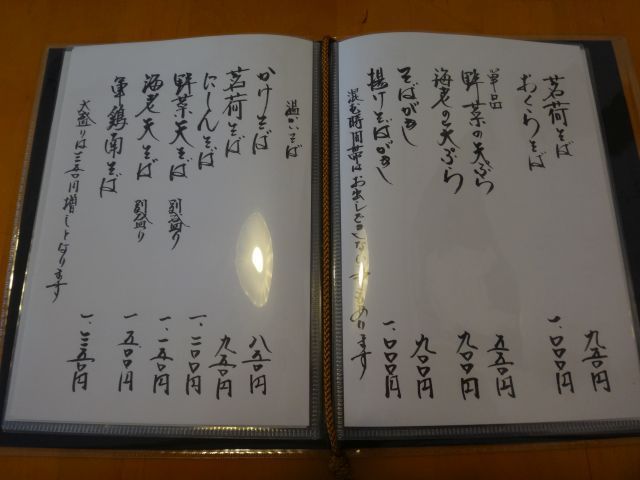 茗荷そば 九五〇円
おくらそば 一、〇〇〇円
単品
野菜の天ぷら 五五〇円
海老の天ぷら 九〇〇円
そばがき 九〇〇円
揚げそばがき 一、〇〇〇円
混む時間帯はお出しできない もあります
温かいそば
かけそば 八五〇円
茗荷そば 九五〇円
にしんそば 一、二〇〇円
野菜天そば 別盛り 一、一五〇円
海老天そば 別盛り 一、五〇〇円
軍鶏南そば 一、三五〇円
大盛りは三五〇円増しとなります